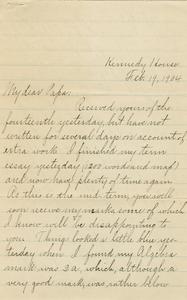 Kennedy House.
Feb. 19, 1904
My dear Papa:
Received yours of the
fourteenth yesterday, but have not
written for several days on account of
extra work. I finished my term
essay yesterday (1200 words and map)
and now have plenty of time again.
As this is the mid-term, you will
soon receive my marks some of which
I know will be disappointing to
you. Things looked a little blue yes-
terday when I found my Algebra
mark was 3a, which, although a
very good mark, was rather below